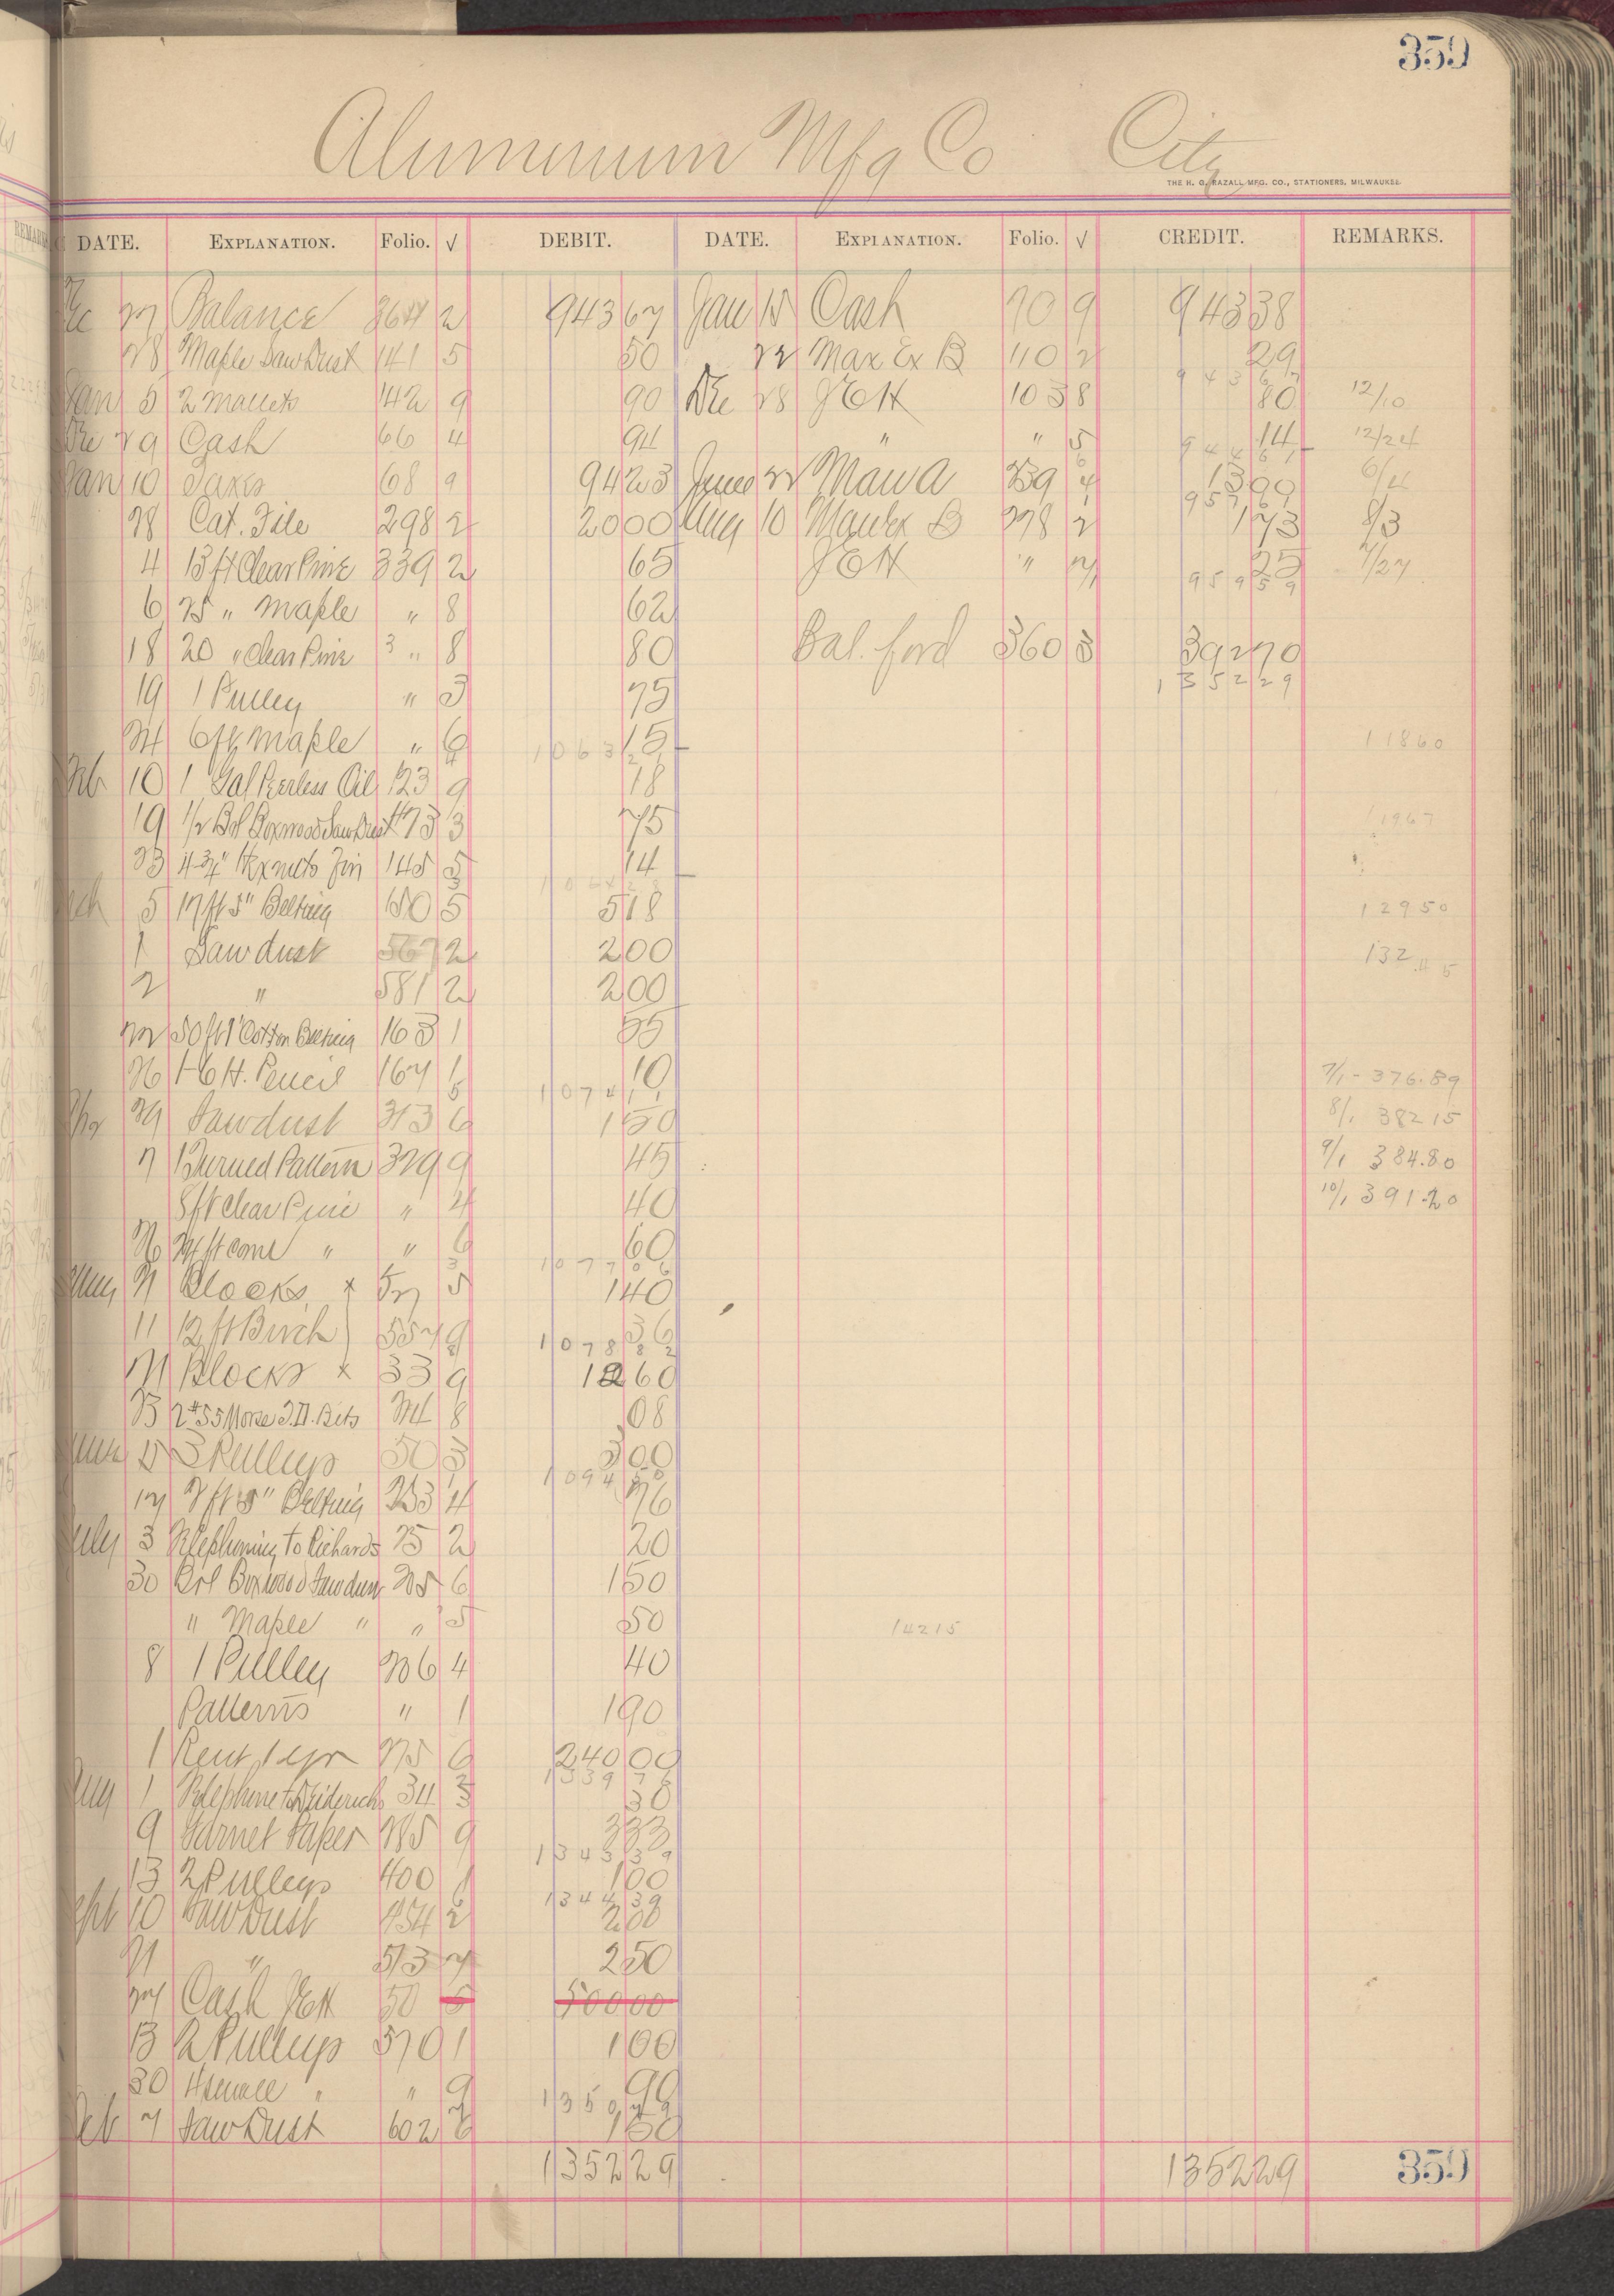 359
Aluminum Mfg Co City
THE H. G. RAZALL MFG. CO., STATIONERS, MILWAUKEE
DATE. EXPLANATION. Folio. √ DEBIT. DATE. EXPLANATION. Folio. √ CREDIT. REMARKS.
27 Balance 2 943 67 Jan 15 Cash 70 9 943 38
28 Maple Saw Dust 141 5 50 22 Max Ex B 110 2 29
943 67
Jan 5 2 mallets 142 9 90 Dec 28 JEH 103 8 80 12/10
Dec 29 Cash 66 4 94 " " 5 14 12/24
944 61
Jan 10 Taxes 68 9 94 23 June 22 239 4 13 00 6/4
957 61
28 Cat. File 298 2 20 00 Aug 10 B 278 2 1 73 8/3
4 13 ft Clear Pine 339 2 65 JEH " 7 25 7/27
959 59
6 25 " Maple " 8 62
18 20 " Clear Pine 3 " 8 80 Bal. ford 360 3 392 70
1352 29
19 1 Pulley " 3 75
24 6 ft Maple " 6 15 118 60
1063 21
Feb 10 1 Gal Peerless Oil 123 9 18
19 1/2 Bbl Boxwood Saw Dust 173 3 75 119 67
23 4-3/4" Hex nuts 145 5 14
5 17 ft 3" Belting 150 5 5 18 129 50
1 Sawdust 567 2 2 00 132 45
2 " 581 2 2 00
22 50 ft 1" Cotton Belting 163 1 55
26 1-6 H. Pencil 167 1 10 7/1 - 376.89
1074 11
29 Sawdust 313 6 1 50 8/1 382 15
7 1 Burned Pattern 329 9 45 9/1 384.80
8 ft Clear Pine " 4 40 10/1 391.20
26 " " 6 60
1077 06
Blocks x 57 5 1 40
11 12 ft Birch 557 9 36
1078 82
21 Blocks x 33 9 12 60
23 2 #55 Morse T.D. Bits 24 8 08
3 Pulleys 50 3 3 00
1094 50
17 Belting 253 4 76
July 3 Telephoning to Richards 25 2 20
30 Brl Boxwood Sawdust 6 1 50
" Maple " " 5 50 142 15
8 1 Pulley 206 4 40
Patterns " 1 1 90
1 Rent 1 yr 275 6 240 00
1339 76
Aug 1 Telephone to Diderichs 34 3 30
9 Garnet Paper 285 9 3 33
1343 39
13 2 Pulleys 400 1 1 00
1344 39
Sept 10 Saw Dust 454 2 2 00
21 " 513 7 2 50
27 Cash JEH 50 500 00
13 2 Pulleys 570 1 1 00
30 4 small " " 9 99
Oct 7 Saw Dust 602 1 50
1352 29 1352 29
359